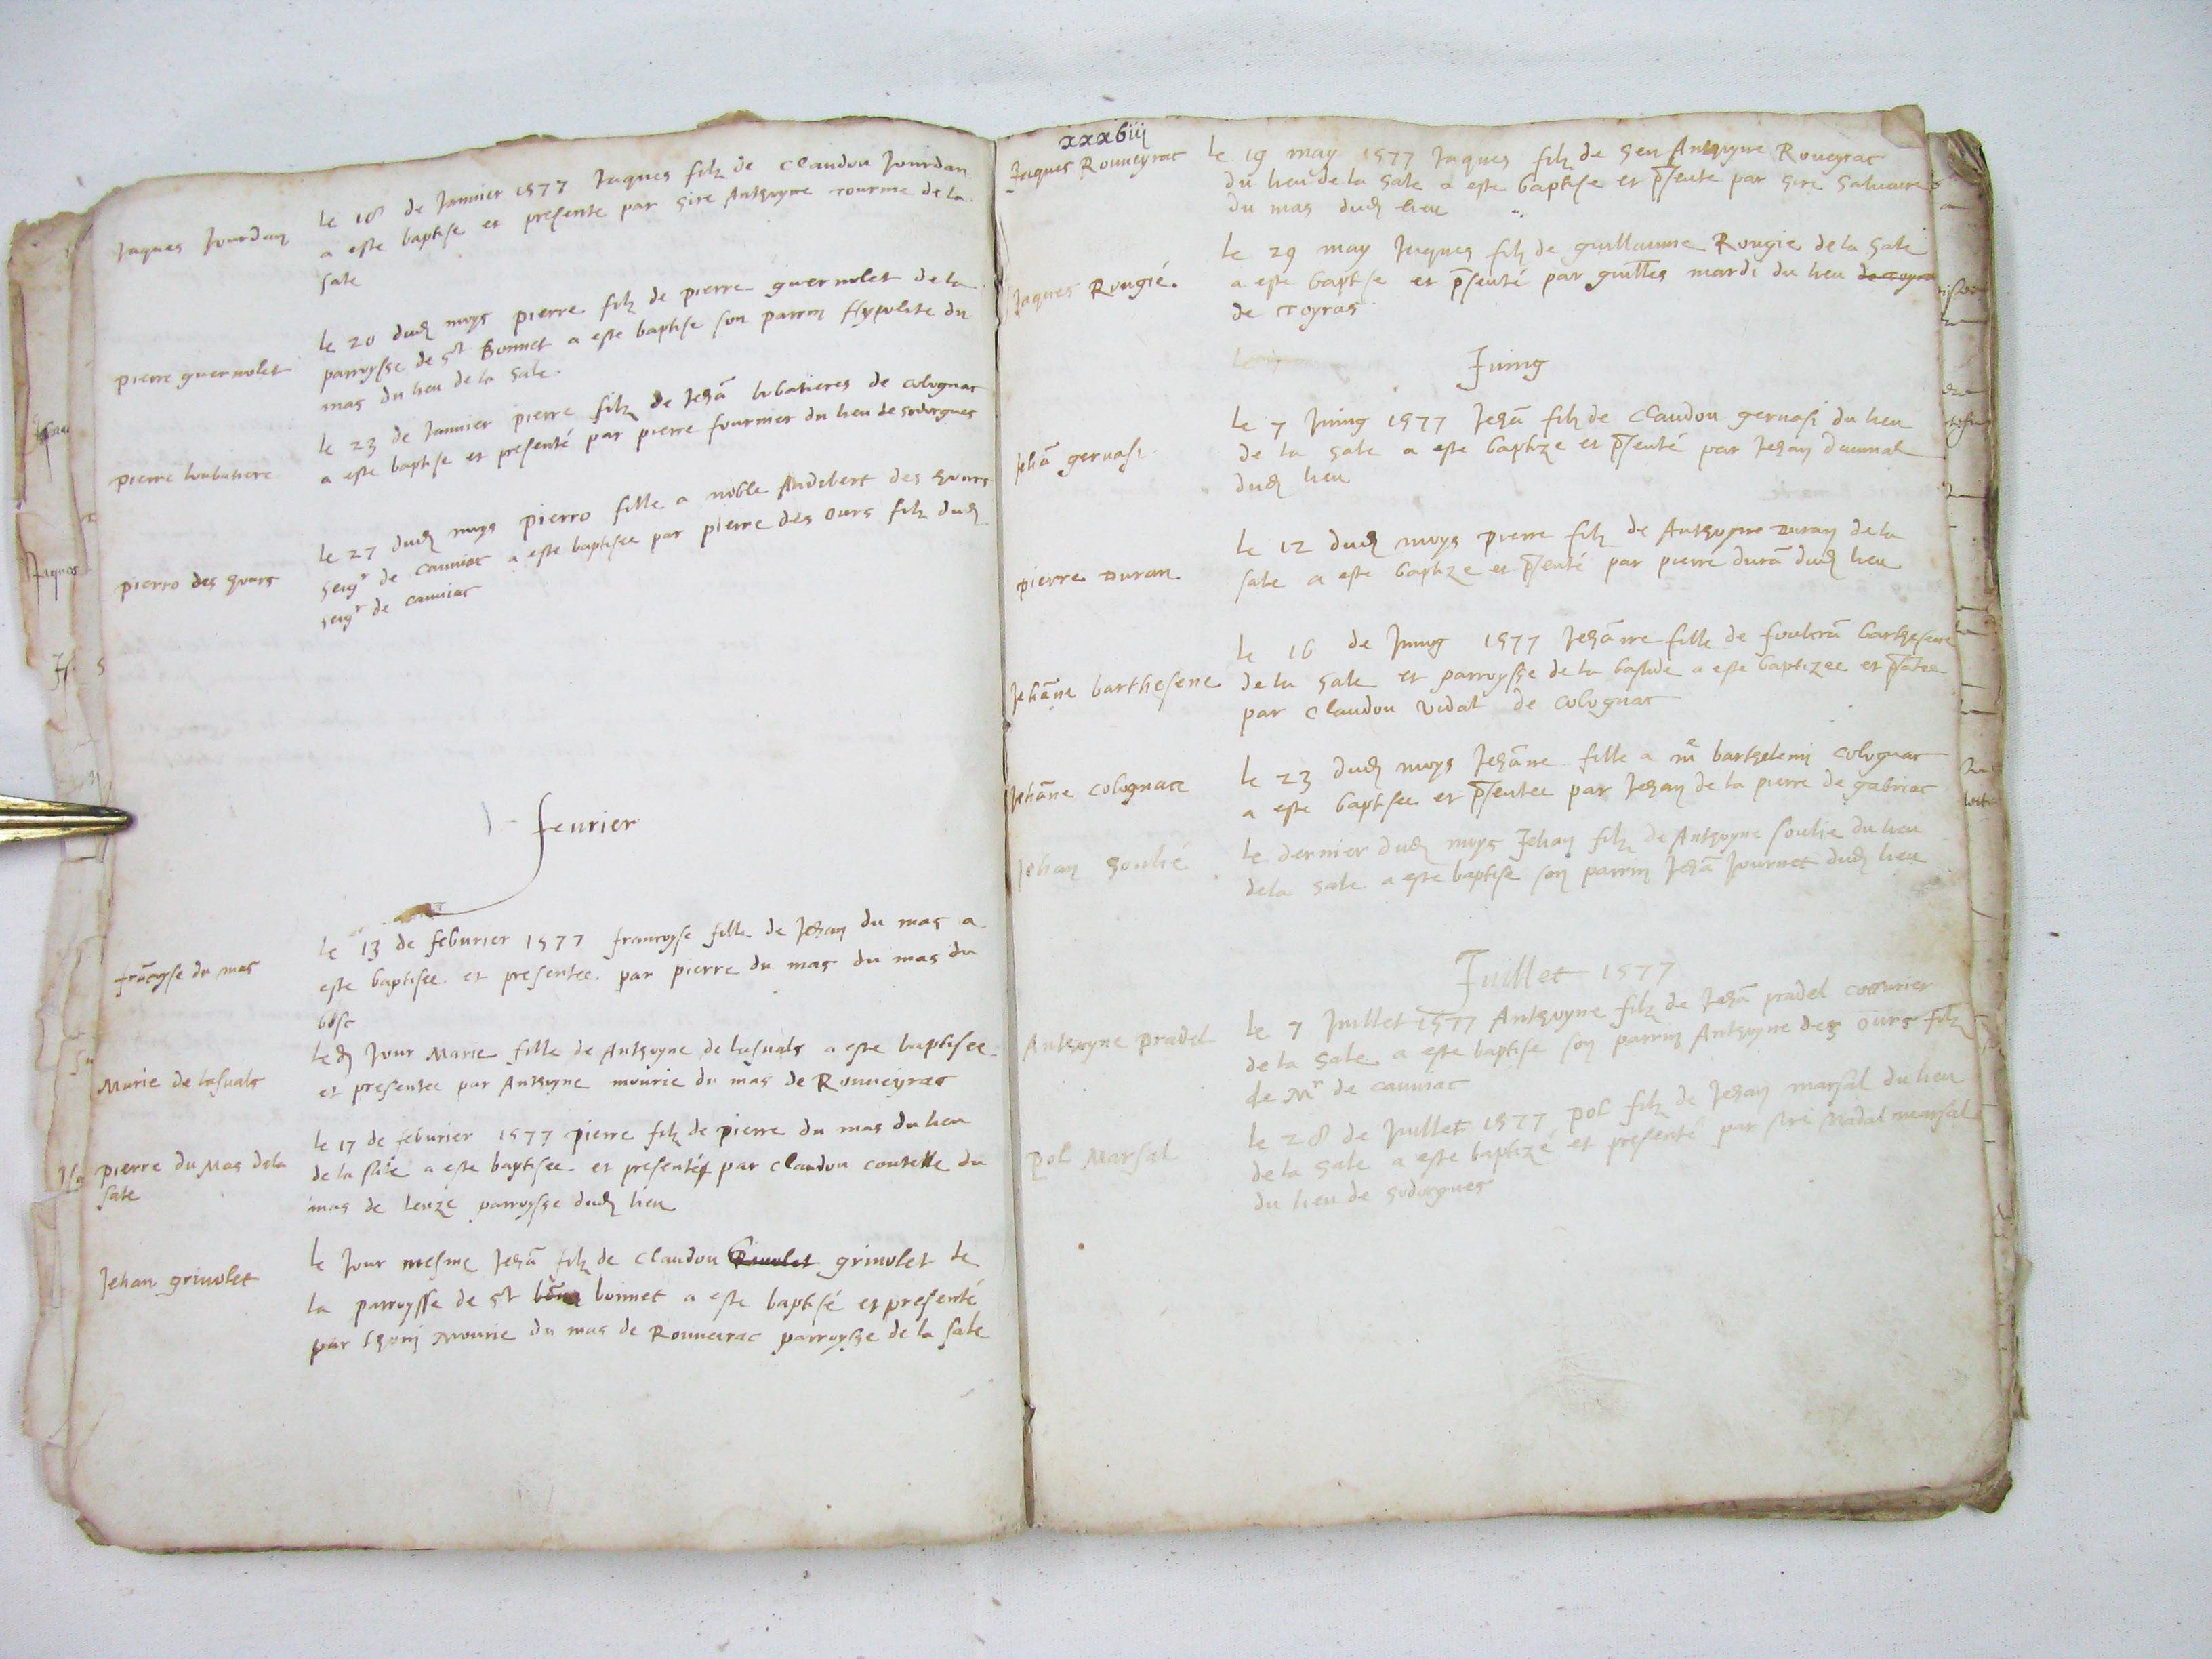 Jaques Jourdan
le 18 de Janvier 1577 Jaques filz de Claudou Jourdan
a este baptise et presente par sire Anthoyne tourine de la
sale
pierre guernolet
le 20 dud moys pierre filz de pierre guernolet de la
parroysse de St Bonnet a este baptise son parrin Hypolite du
mas du lieu de la sale.
pierre loubatiere
le 23 de Janvier pierre filz de Jehã lobatieres de colognac
a este baptise et presenté par pierre fournier du lieu de sodorgues
pierro des hours
le 27 dud moys pierro fille a noble Audibert des hours
seigr de cauniac a este baptisee par pierre des ours filz dud
seigr de cauniac
feurier
frãcoyse du mas
le 13 de feburier 1577 francoyse fille de Jehan du mas a
este baptisee et presentee par pierre du mas du mas du
bosc
Marie de lasuals
led Jour Marie fille de Anthoyne de lasuals a este baptisee
et presentee par Anthoyne mourie du mas de Rouueyrac
pierre du Mas de la
sale
le 17 de feburier 1577 pierre filz de pierre du mas du lieu
de la sale a este baptisee et presenté par Claudou coutelle du
mas de leuze parroysse dud lieu
Jehan grinolet
le Jour mesme Jehã filz de Claudou grinolet de
la parroysse de St bonnet a este baptisé et presenté
par thoni Mourie du mas de Rouueirac parroysse de la sale
xxxbiij
Jaques Rouueyrac
le 19 may 1577 Jaques filz de seu Anthoyne Roueyrac
du lieu de la sale a este baptise et p̃sente par sire saluaire
du mas dud lieu
Jaques Rougié.
le 29 may Jaques filz de guillaume Rougie de la sale
a este baptise et p̃senté par guilles mardi du lieu de toyra
de Toyras
Juing
Jehã geruasi
le 7 Juing 1577 Jehã filz de Claudou geruasi du lieu
de la sale a este baptize et p̃senté par Jehan daunal
dud lieu
pierre Duran
le 12 dud moys pierre filz de Anthoyne Duran de la
sale a este baptize et p̃senté par pierre durã dud lieu
Jehãne barthesene
le 16 de Juing 1577 Jehãne fille de foulcrã barthesene
de la sale et parroysse de la bastide a este baptizee et p̃sãtee
par Claudou vidal de Colognac
Jehãne colognace
le 23 dud moys Jehãne fille a me barthelemi colognac
a este baptisee et p̃sentee par Jehan de la pierre de gabriac
Jehan Soulié
le dernier dud moys Jehan filz de Anthoyne soulie du lieu
de la sale a este baptise son parrin Jehã Journet dud lieu
Juillet 1577
Anthoyne pradel
le 7 Juillet 1577 Anthoyne filz de Jehã pradel coturier
de la sale a este baptise son parrin Anthoyne des ours filz
de Mr de cauniac
Pol Marsal
le 28 de Juillet 1577 pol filz de Jehan marsal du lieu
de la sale a este baptizé et presenté par sire Nadal marsal
du lieu de sodorgues